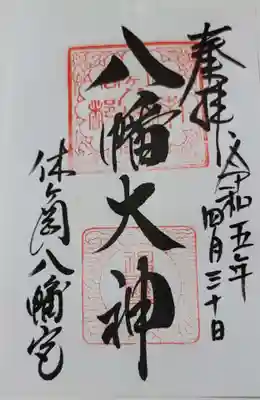 奉拝
令和五年
四月三十日
八幡大神
休ヶ岡八幡宮